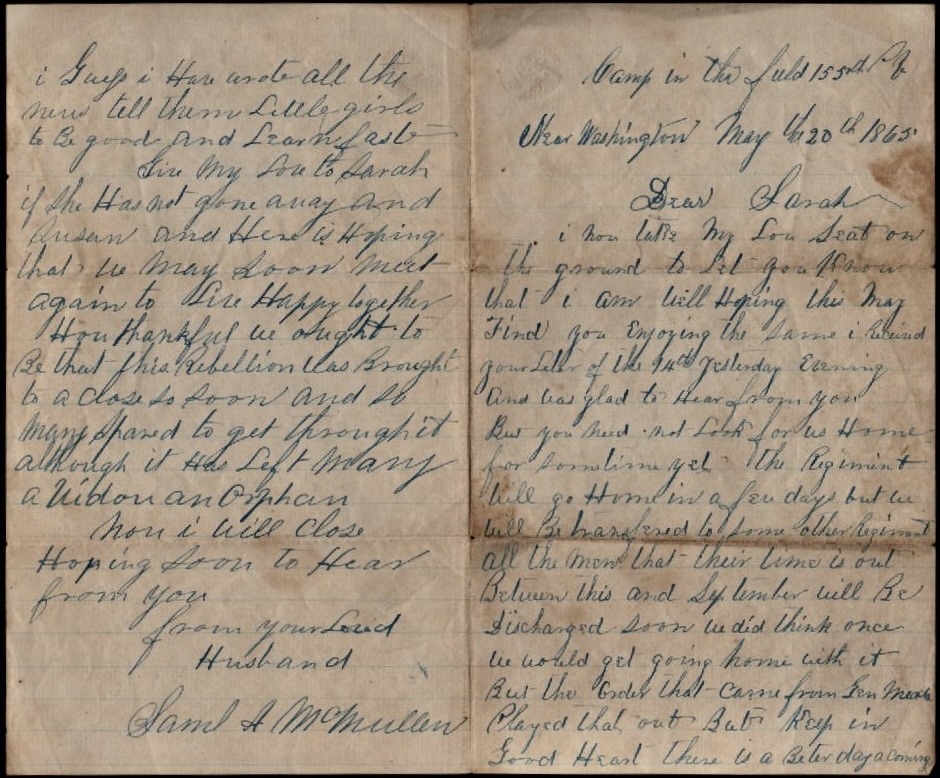 Camp in the field 155th Pa
Near Washington May the 20th 1865
Dear Sarah
i now take My Low Seat on
the ground to Let you Know
that i am Well Hoping this May
Find you Enjoying the same i Received
your Leter of the 14th Yesterday Evening
And was glad to Hear from you
But you need not Look for us Home
for sometime yet the Regiment
Will go Home in a few days but we
will Be transfered to some other Regiment
all the men that their time is out
Between this and September will Be
Discharged soon we did think once
we would get going home with it
But the Order that came from Gen Meade
Played that out But Keep in
Good Heart there is a Beter day a coming
i Guess i Have wrote all the
news tell them Little girls
to Be good and Learn fast
Give My Love to Sarah
if she Has not gone away and
Susan and Here is Hoping
that we May soon Meet
again to Live Happy together
How thankful we ought to
Be that this Rebellion was Brought
to a close so soon and so
Many spared to get through it
although it Has Left Many
a Widow an Orphan
Now i will Close
Hoping soon to Hear
from you
from your Loved
Husband
Saml A McMullen